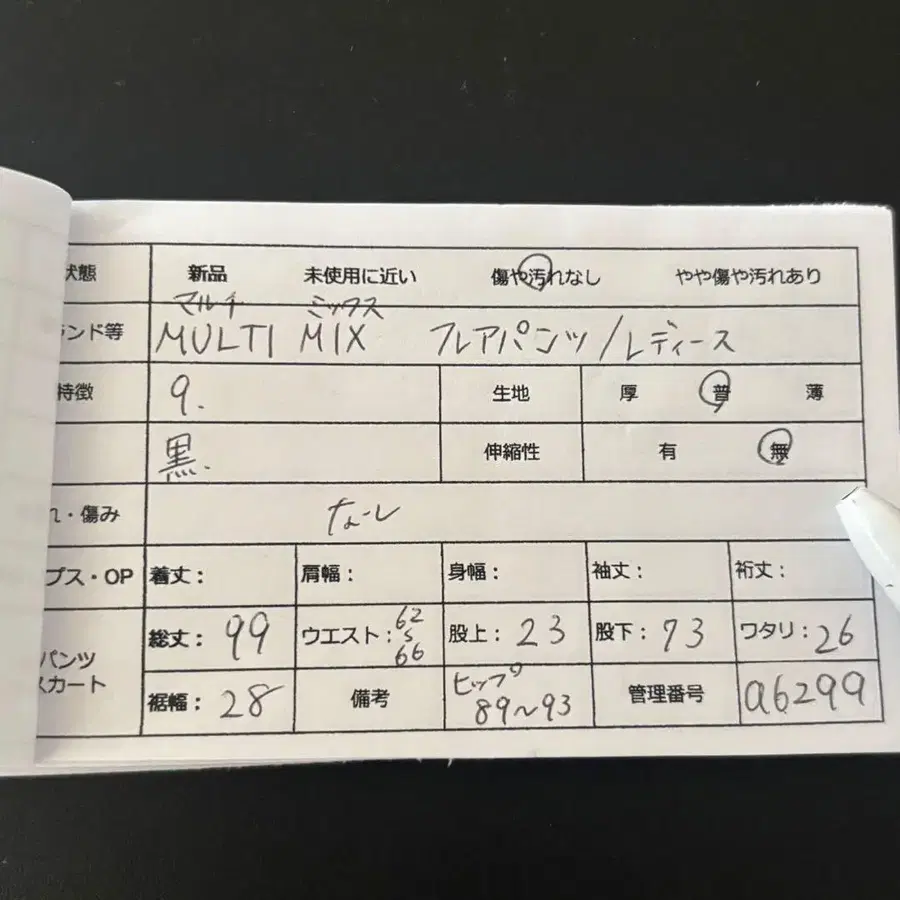 状態 新品 未使用に近い 傷や汚れなし やや傷や汚れあり
マルチ ミックス
ランド等 MULTI MIX フレアパンツ/レディース
特徴 9. 生地 厚 普 薄
黒. 伸縮性 有 無
れ・傷み なし
プス・OP 着丈: 肩幅: 身幅: 袖丈: 裄丈:
パンツ
スカート
総丈: 99 ウエスト: 62 ~ 66 股上: 23 股下: 73 ワタリ: 26
裾幅: 28 備考 ヒップ 89~93 管理番号 a6299